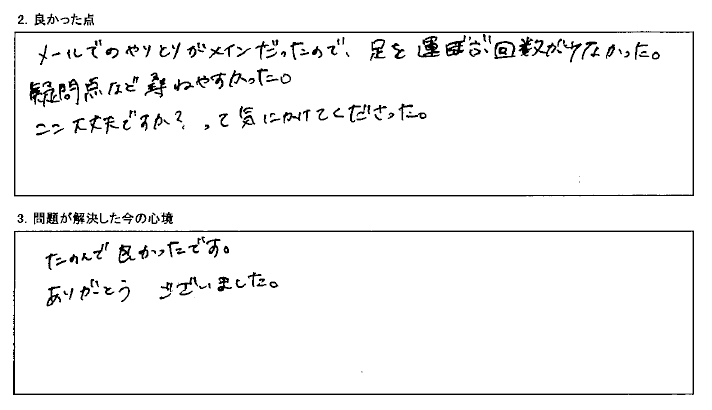 2. 良かった点
メールでのやりとりがメインだったので、足を運ぶ回数が少なかった。
疑問点など尋ねやすかった。
ここ大丈夫ですか?、って気にかけてくださった。
3. 問題が解決した今の心境
たのんで良かったです。
ありがとう ございました。